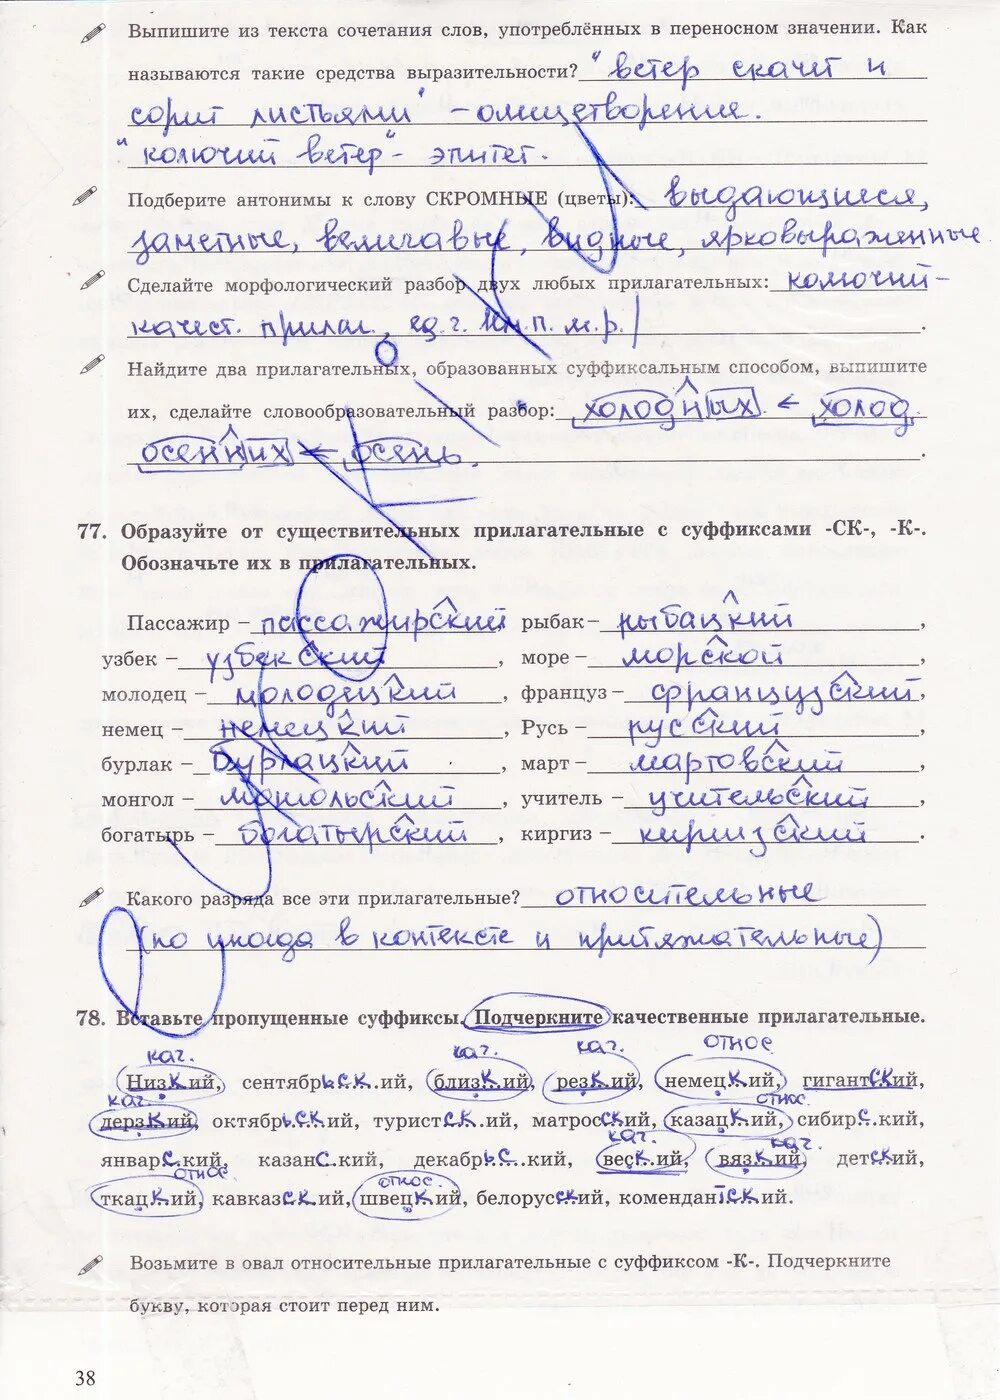 Выпишите из текста сочетания слов, употреблённых в переносном значении. Как
называются такие средства выразительности? "ветер скачет и
сорит листьями" - олицетворение.
"колючий ветер" - эпитет.
Подберите антонимы к слову СКРОМНЫЕ (цветы): выдающиеся,
заметные, величавые, видные, ярковыраженные
Сделайте морфологический разбор двух любых прилагательных: колючий-
качест. прилаг., ед.ч. Им.п. м.р.
Найдите два прилагательных, образованных суффиксальным способом, выпишите
их, сделайте словообразовательный разбор: холодных ← холод
осенних ← осень.
77. Образуйте от существительных прилагательные с суффиксами -СК-, -К-.
Обозначьте их в прилагательных.
Пассажир – пассажирский, рыбак – рыбацкий,
узбек – узбекский, море – морской,
молодец – молодецкий, француз – французский,
немец – немецкий, Русь – русский,
бурлак – бурлацкий, март – мартовский,
монгол – монгольский, учитель – учительский,
богатырь – богатырский, киргиз – киргизский.
Какого разряда все эти прилагательные? относительные
(но иногда в контексте и притяжательные)
78. Вставьте пропущенные суффиксы. Подчеркните качественные прилагательные.
кач. кач. кач. относ.
Низкий, сентябрьский, близкий, резкий, немецкий, гигантский,
кач. относ.
дерзкий, октябрьский, туристский, матросский, казацкий, сибирский,
кач. кач.
январский, казанский, декабрьский, веский, вязкий, детский,
относ. относ.
ткацкий, кавказский, швецкий, белорусский, комендантский.
Возьмите в овал относительные прилагательные с суффиксом -К-. Подчеркните
букву, которая стоит перед ним.
38